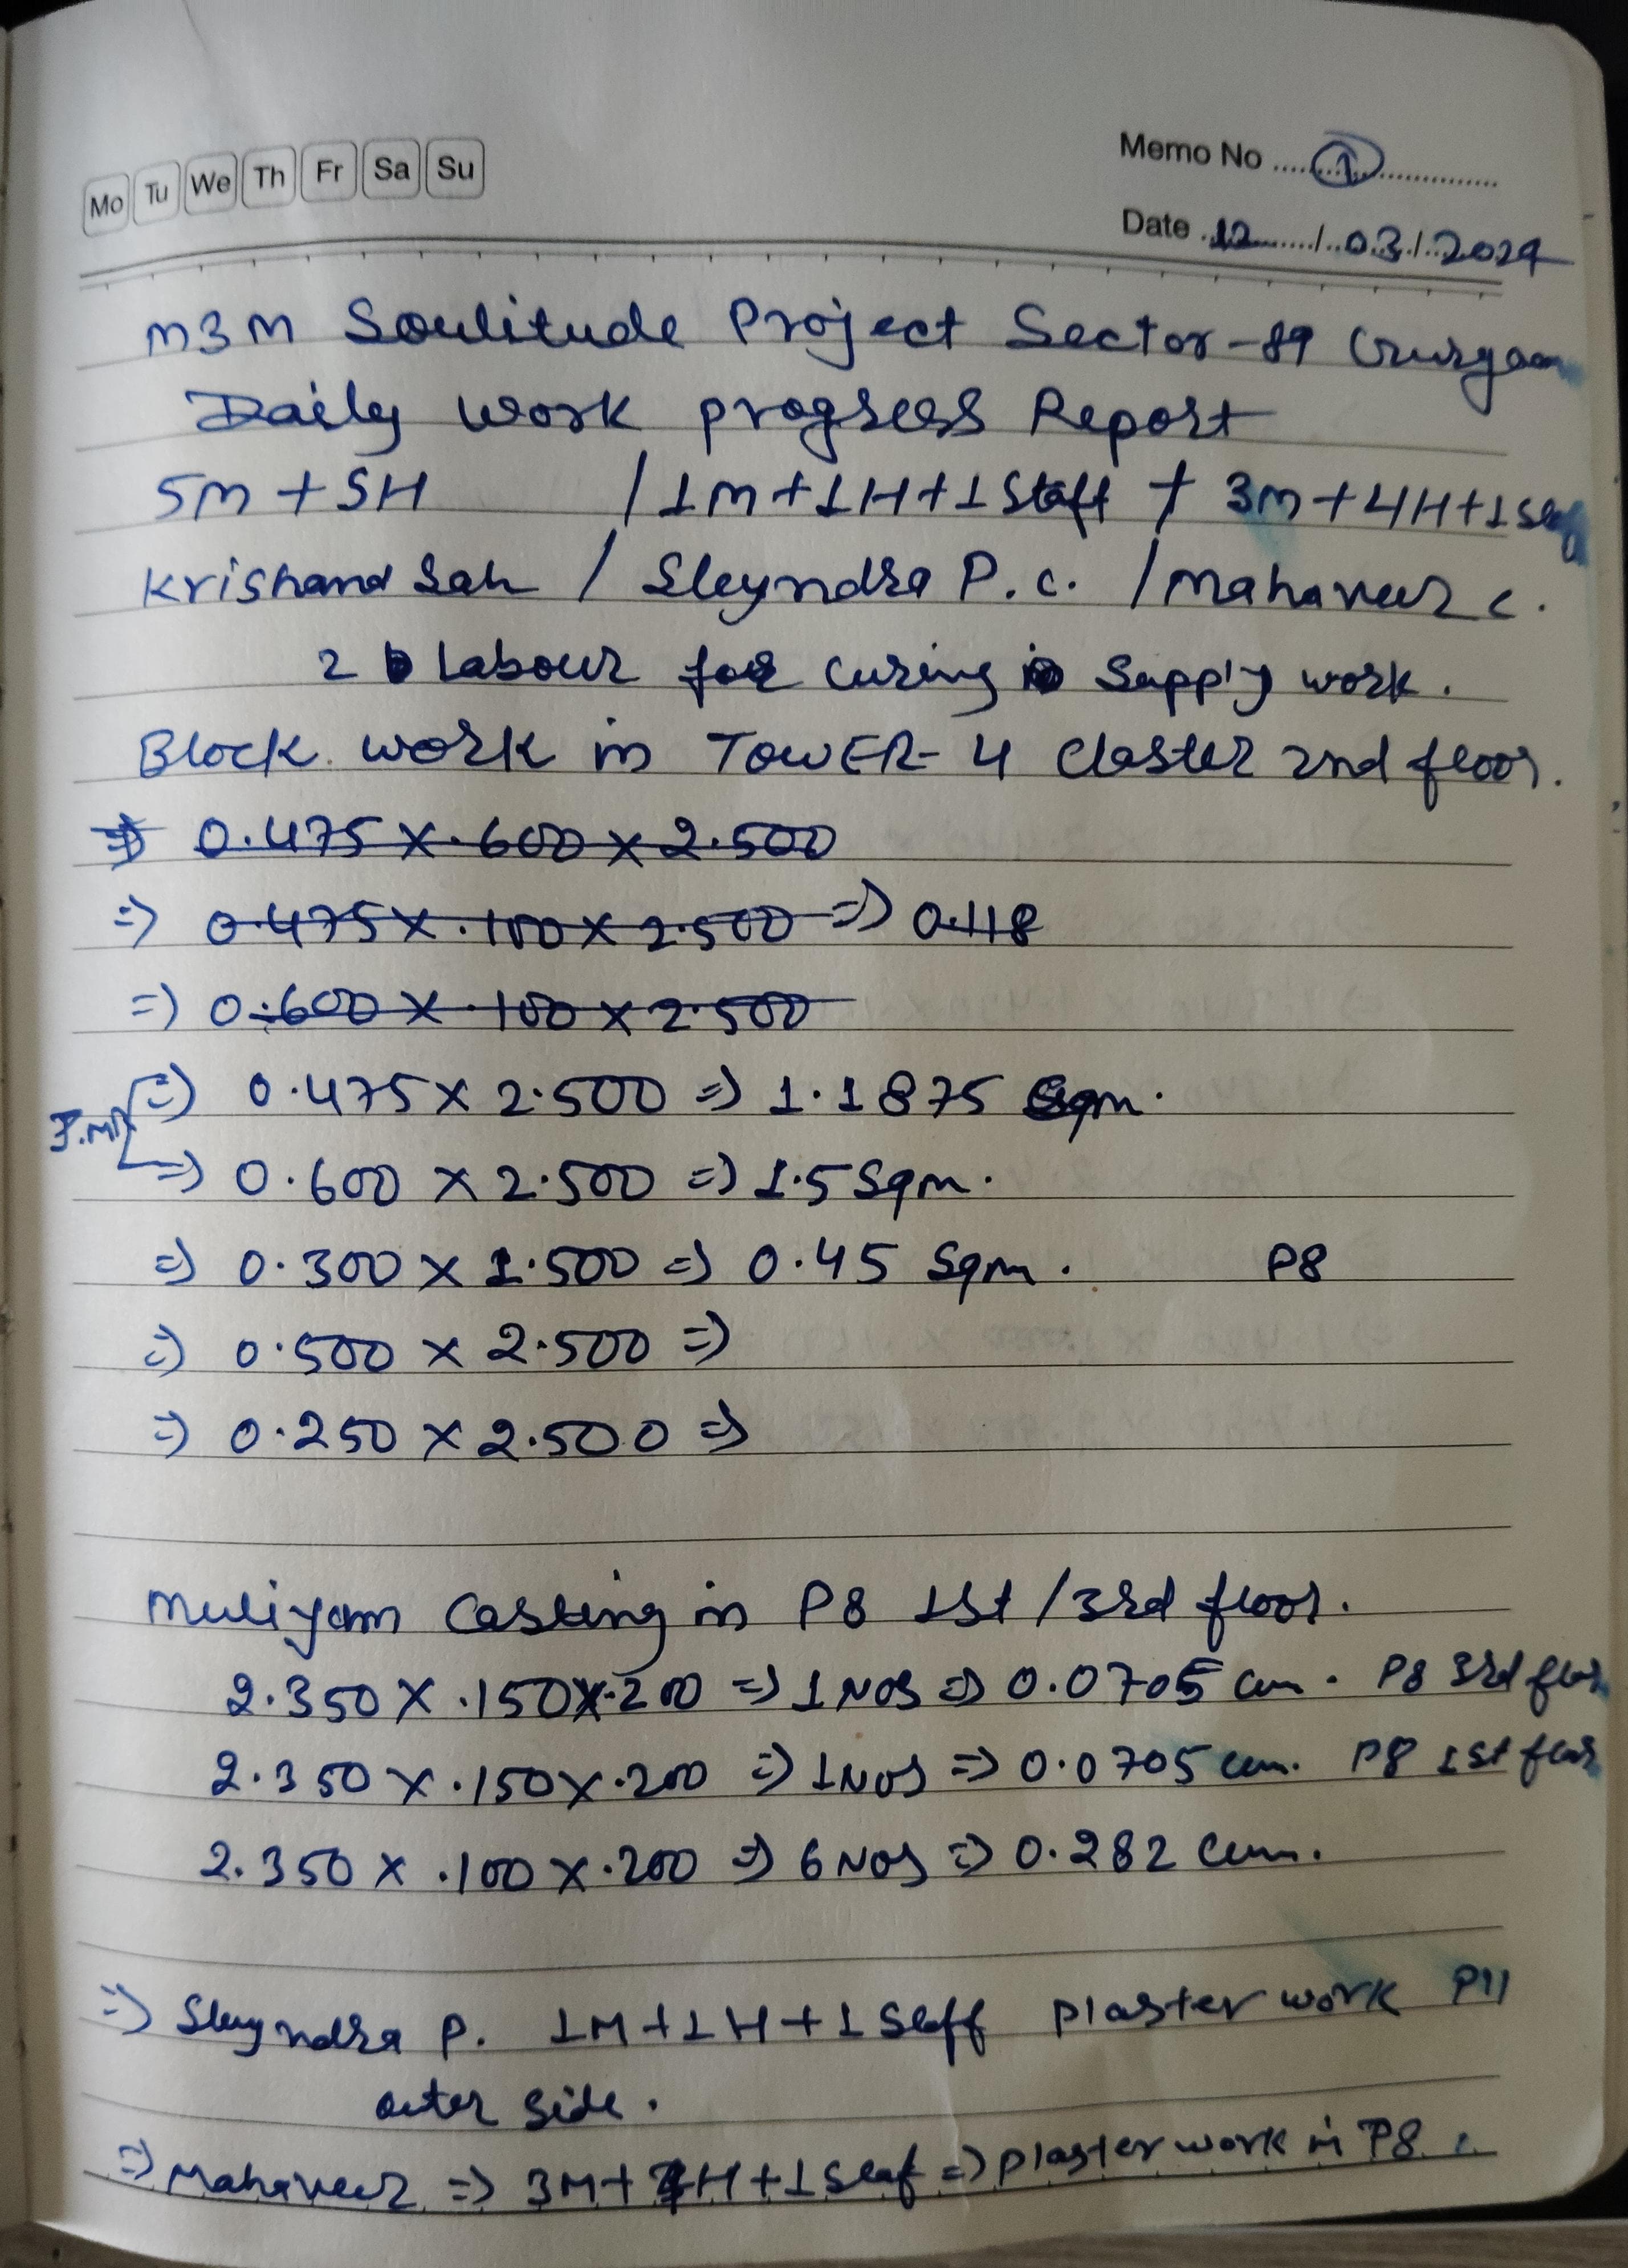 Mo Tu We Th Fr Sa Su
Memo No 1
Date 12/03/2024
M3M Soulitude Project Sector-89 Gurgaon
Daily Work progress Report
5M + 5H / 1M+1H+1 Staff + 3M+4H+1
Krishand Sah / P.C. / Mahaveer C.
2 Labour for curing Supply work.
Block work in TOWER-4 Claster 2nd floor.
=> 0.475 X .600 X 2.500
=> 0.475 X .100 X 2.500 => 0.118
=> 0.600 X .100 X 2.500
=> 0.475 X 2.500 => 1.1875 Sqm.
=> 0.600 X 2.500 => 1.5 Sqm.
=> 0.300 X 1.500 => 0.45 Sqm. P8
=> 0.500 X 2.500 =>
=> 0.250 X 2.500 =>
Muliyam Casting in P8 1st/3rd floor.
2.350 X .150 X .200 => 1 Nos => 0.0705 cum. P8 3rd floor
2.350 X .150 X .200 => 1 Nos => 0.0705 cum. P8 1st floor
2.350 X .100 X .200 => 6 Nos => 0.282 Cum.
=> P. 1M+1H+1 Plaster work P11
outer side.
=> Mahaveer => 3M+4H+1 => Plaster work in P8